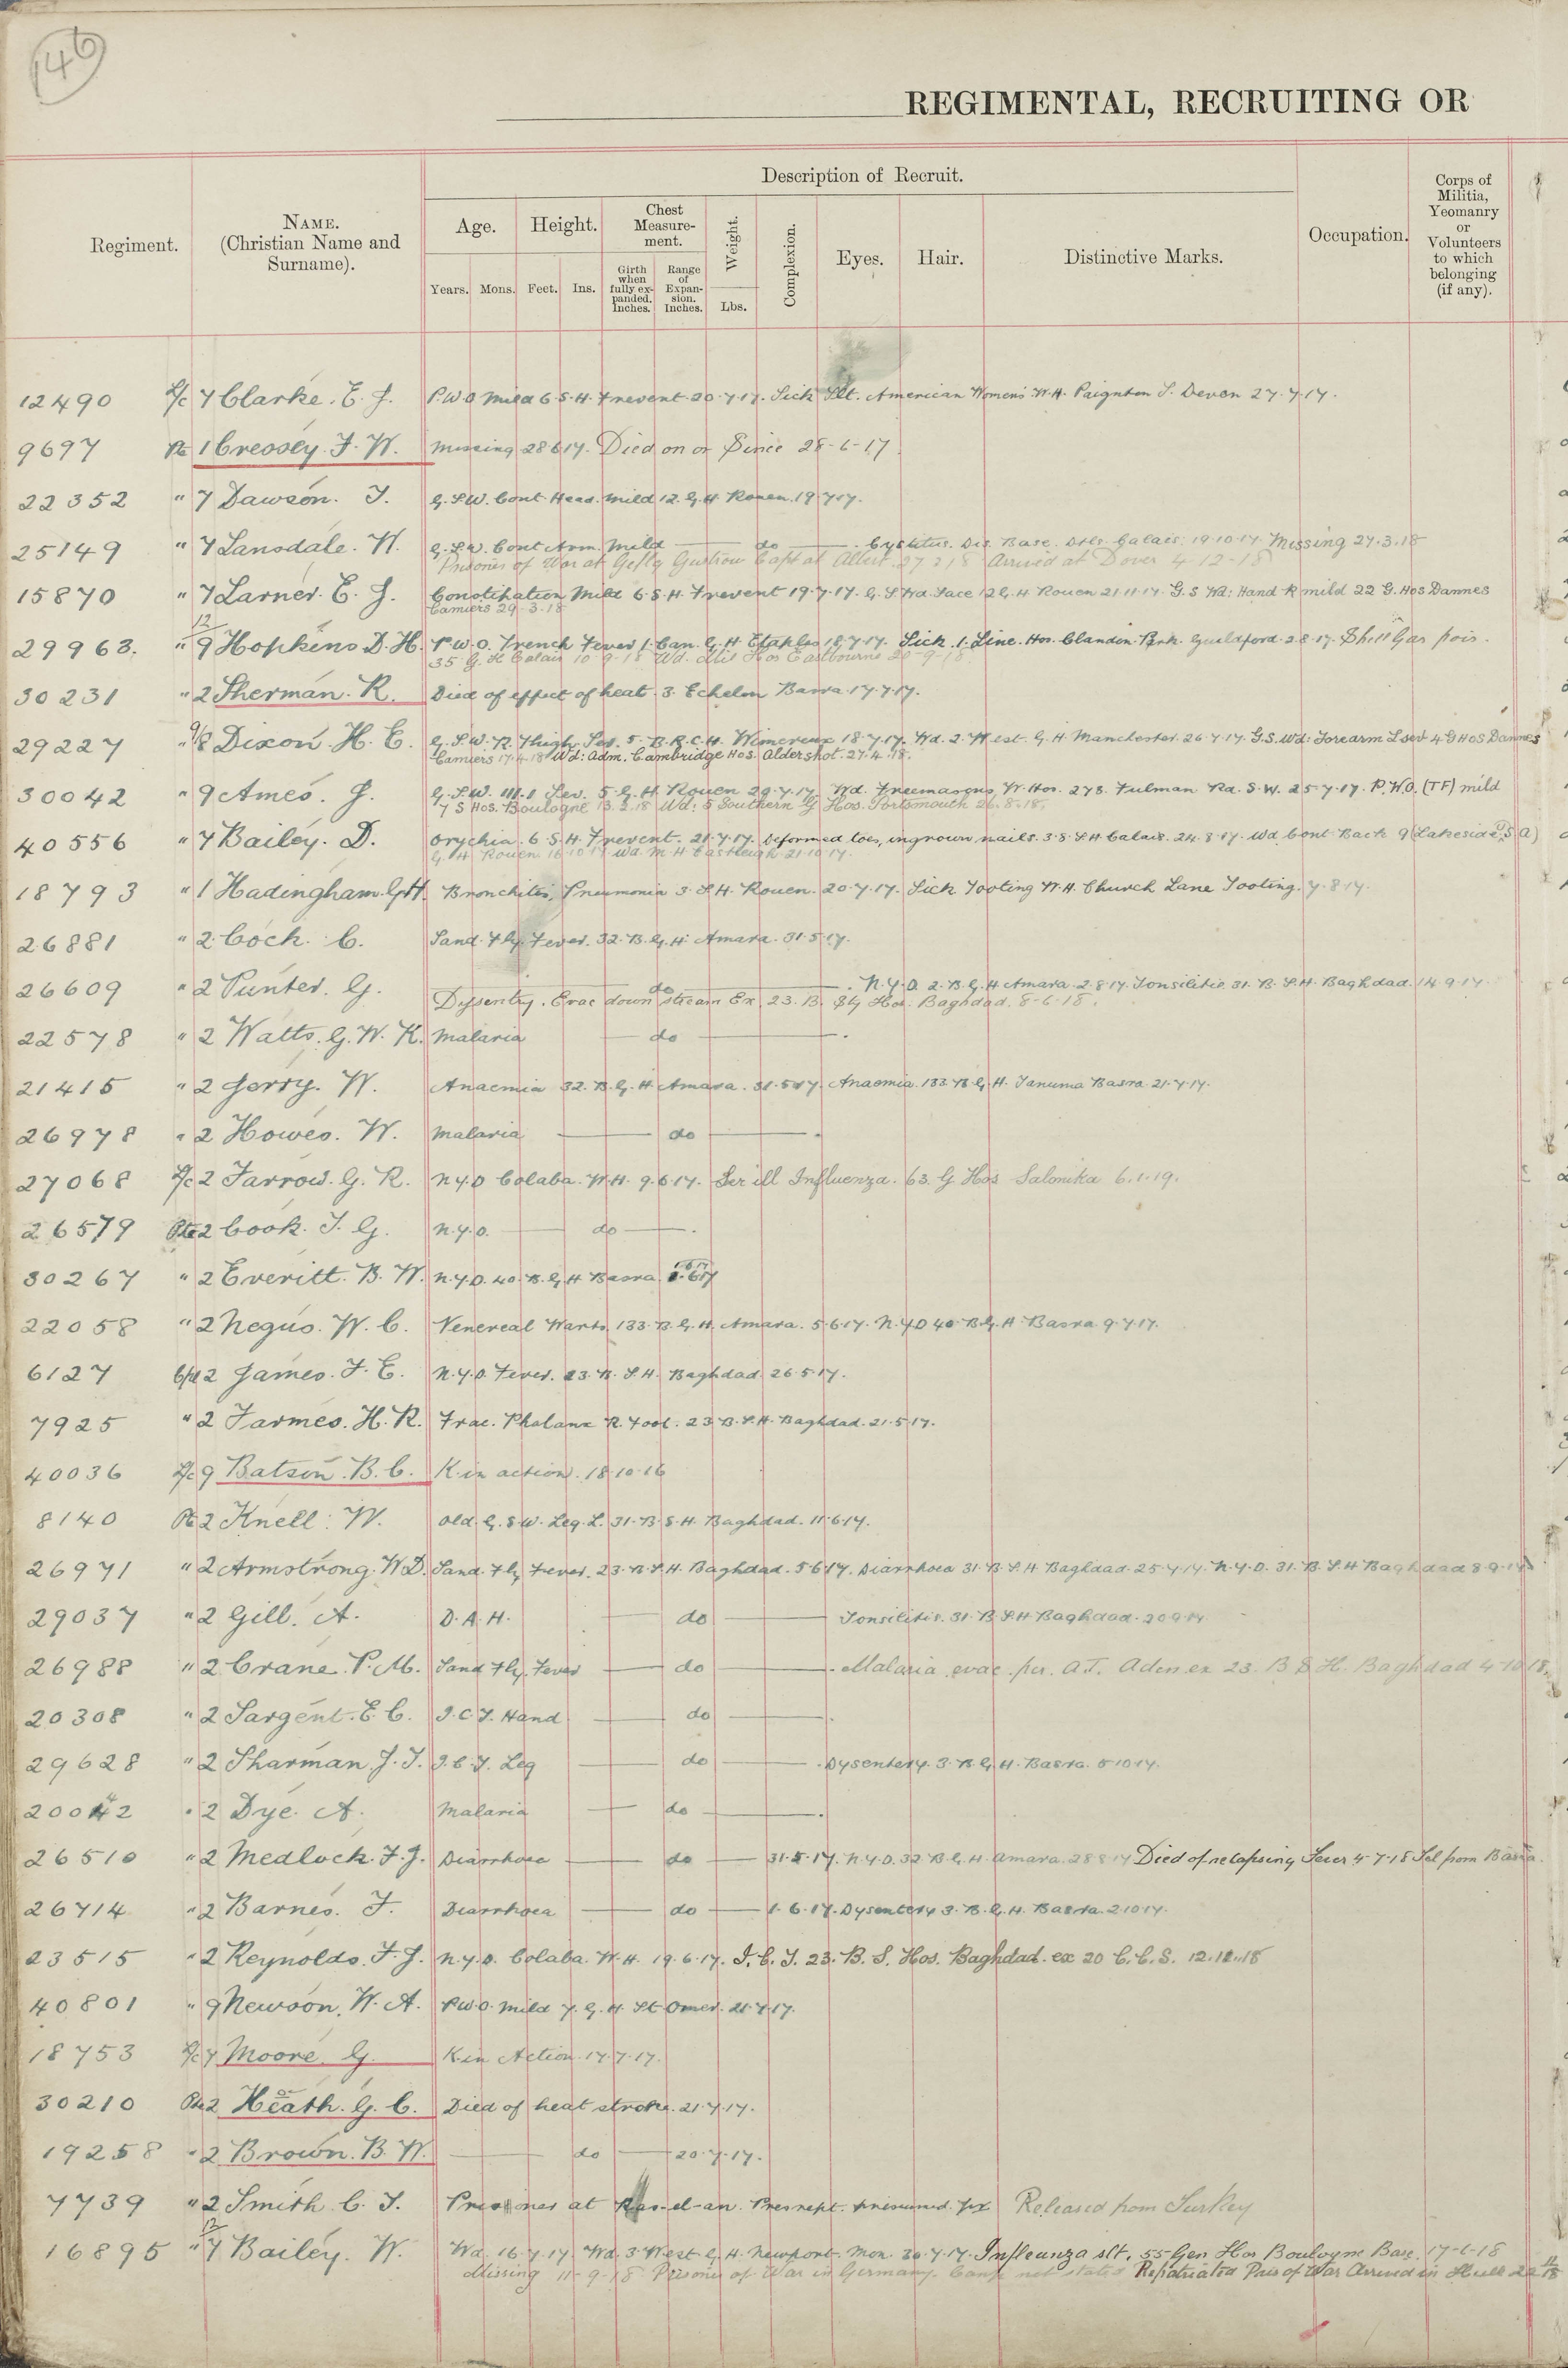 146
REGIMENTAL, RECRUITING OR
Description of Recruit.
Regiment.
NAME.
(Christian Name and
Surname).
Age.
Height.
Chest
Measure-
ment.
Weight.
Complexion.
Eyes.
Hair.
Distinctive Marks.
Occupation.
Corps of
Militia,
Yeomanry
or
Volunteers
to which
belonging
(if any).
Years.
Mons.
Feet.
Ins.
Girth
when
fully ex-
panded.
Inches.
Range
of
Expan-
sion.
Inches.
Lbs.
12490 L/c 7 Clarke. E. J. P.U.O Mild 6 S.H. Frevent 20.7.17. Sick Slt. American Women's W.H. Paignton S. Devon 27.7.17.
9697 Pte 1 Creasey. F. W. Missing 28 6 17. Died on or Since 28-6-17
22352 " 7 Dawson. T. G.S.W. Cont Head. Mild 12. G.H Rouen. 19 7 17.
25149 " 7 Lansdale. W. G.S.W. Cont Arm. Mild do Cystitus. Dis. Base. Dets. Calais. 19.10.17. Missing 27.3.18
Prisoner of War at Gustrow Capt at Albert 27 3 18 Arrived at Dover 4-12-18
15870 " 7 Larner. E. J. Constipation Mild 6 S.H. Frevent 19.7.17. G.S Wd. Face 12 G.H Rouen 21.11.17. G.S Wd: Hand R mild 22 G. Hos Dannes
Camiers 29.3.18
29963. " 12/9 Hopkins D. H. P.U.O. Trench Fever 1. Can. G.H Etaples 18.7.17. Sick. 1. Line. Hos. Clandon. Park. Guildford. 2.8.17. Shell Gas pois.
35 G.H Calais 10-9-18 Wd. Mil Hos Eastbourne 20-9-18
30231 " 2 Sherman. R. Died of effect of heat. 3. Echelon Basra. 17.7.17.
29227 " 9/8 Dixon. H. E. G.S.W. R. Thigh. Sev. 5. B.R.C.H. Wimereux 18.7.17. Wd. 2. West. G.H. Manchester. 26.7.17. G.S. Wd: Forearm L Sev 4 G Hos Dannes
Camiers 17.4.18 Wd: adm. Cambridge Hos. Aldershot. 27.4.18.
30042 " 9 Ames. J. G.S.W. Sev. 5. G.H. Rouen 20.7.17. Wd. Freemasons W. Hos. 278. Fulman Rd. S.W. 25.7.17. P.U.O. (TF) mild
7 S Hos. Boulogne 13.8.18 Wd: 5 Southern G Hos. Portsmouth 26.8.18.
40556 " 7 Bailey. D. Orychia. 6. S.H. Frevent. 21.7.17. deformed toes, ingrown nails. 3.8. S H Calais. 24.8.17. Wd Cont Back 9 (Lakeside U.S.A)
G.H Rouen 16 10 17 Wd. M H Eastleigh 21 10 17.
18793 " 1 Hadingham. G H. Bronchitis, Pneumonia 3. S.H. Rouen. 20.7.17. Sick Tooting W.H. Church Lane Tooting. 7.8.17.
26881 " 2 Cock. C. Sand. Fly. Fever. 32. B.G.H Amara. 31.5.17.
26609 " 2 Punter. G. do N.Y.D. 2. B.G.H Amara. 2.8.17. Tonsilitis. 31. B.S.H. Baghdad. 14.9.17.
Dysentry. Evac down stream Ex. 23. B. Stg Hos. Baghdad. 8-6-18.
22578 " 2 Watts. G. W. K. Malaria do
21415 " 2 Jerry. W. Anaemia 32. B.G.H Amara. 31.5.17. Anaemia. 133. B G.H. Tanuma Basra. 21.7.17.
26978 " 2 Howes. W. Malaria do
27068 L/c 2 Farrow. G. R. N.Y.D Colaba. W.H. 9.6.17. Ser ill Influenza. 63. G Hos Salonika 6.1.19.
26579 Pte 2 Cook. T. G. N.Y.D. do
30267 " 2 Everitt. B. W. N.Y.D. 40. B.G.H Basra.
22058 " 2 Negus. W. C. Venereal Warts 133. B.G.H. Amara. 5.6.17. N.Y.D 40. B.G.H. Basra 9.7.17.
6127 Cpl 2 James. F. E. N.Y.D. Fever. 23. B. S.H. Baghdad. 26.5.17.
7925 " 2 Farmes. H. R. Frac. Phalanx R. Foot. 23 B.S.H. Baghdad. 21.5.17.
40036 L/c 9 Batson. B. C. K. in action. 18.10.16
8140 Pte 2 Knell. W. Old G.S.W. Leg. L. 31. B. S.H. Baghdad. 11.6.17.
26971 " 2 Armstrong. W. D. Sand. Fly Fever. 23. B.S.H. Baghdad. 5 6 17. Diarrhoea 31. B. S.H Baghdad. 25.7.17. N.Y.D. 31. B. S.H Baghdad 8.9.17
29037 " 2 Gill. A. D.A.H. do Tonsilitis. 31. B S.H Baghdad. 20.9.17
26988 " 2 Crane. P. M. Sand Fly. Fever do Malaria evac. per. A.T. Aden ex 23. B S H. Baghdad 4-10-18.
20308 " 2 Sargent. E. C. I.C.T. Hand do
29628 " 2 Sharman. J. T. I.C.T. Leg do Dysentery. 3. B.G.H. Basra. 5.10.17.
20042 " 2 Dye. A. Malaria do
26510 " 2 Medlock. F. J. Diarrhoea do 31.5.17. N.Y.D. 32 B.G.H. Amara. 28 8 17 Died of relapsing fever 4-7-18 Tel from Basra.
26714 " 2 Barnes. F. Diarrhoea do 1.6.17. Dysentery 3. B.G.H. Basra. 2.10.17.
23515 " 2 Reynolds. F. J. N.Y.D. Colaba. W.H. 19.6.17. I.C.T. 23. B. S. Hos. Baghdad. ex 20 C.C.S. 12.12.18
40801 " 9 Newson. W. A. P.U.O. Mild 7. G.H. St Omer. 21.7.17.
18753 L/c 7 Moore. G. K in Action. 17.7.17.
30210 Pte 2 Heath. G. C. Died of heat stroke. 21.7.17.
19258 " 2 Brown. B. W. do 20.7.17.
7739 " 2 Smith. C. T. Prisoner at Ras-el-an. Released from Turkey
16895 " 12/7 Bailey. W. Wd. 16.7.17 Wd. 3 West. G.H. Newport. Mon. 20.7.17. Infleunza slt. 55 Gen Hos Boulogne Base. 17-6-18
Missing 11-9-18 Prisoner of War in Germany. Camp not stated Repatriated Pris of War Arrived in Hull